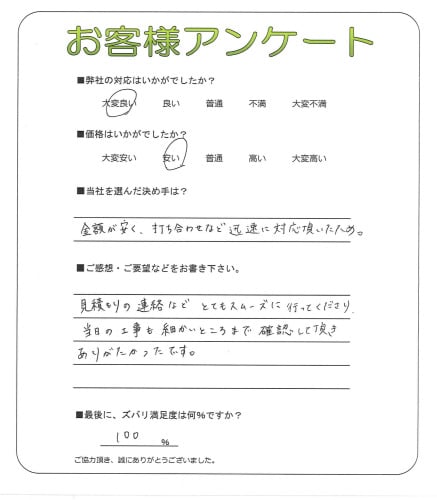 お客様アンケート
■弊社の対応はいかがでしたか？
大変良い 良い 普通 不満 大変不満
■価格はいかがでしたか？
大変安い 安い 普通 高い 大変高い
■当社を選んだ決め手は？
金額が安く、打ち合わせなど迅速に対応頂いたため。
■ご感想・ご要望などをお書き下さい。
見積もりの連絡など とてもスムーズに行ってくださり
当日の工事も細かいところまで確認して頂き
ありがたかったです。
■最後に、ズバリ満足度は何％ですか？
100 ％
ご協力頂き、誠にありがとうございました。